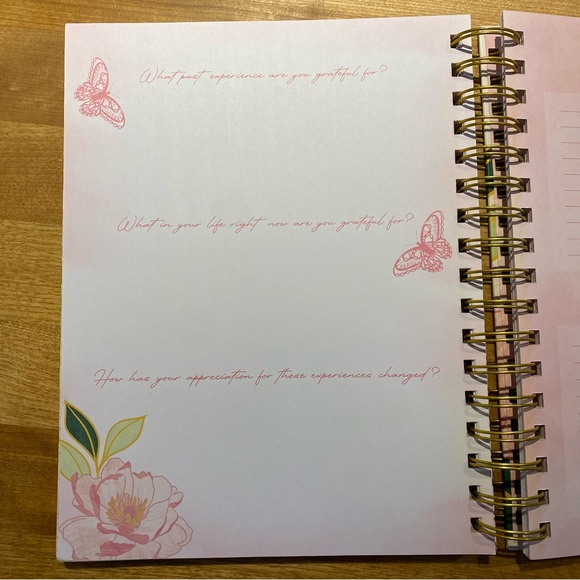 What past experience are you grateful for?
What in your life right now are you grateful for?
How has your appreciation for these experiences changed?